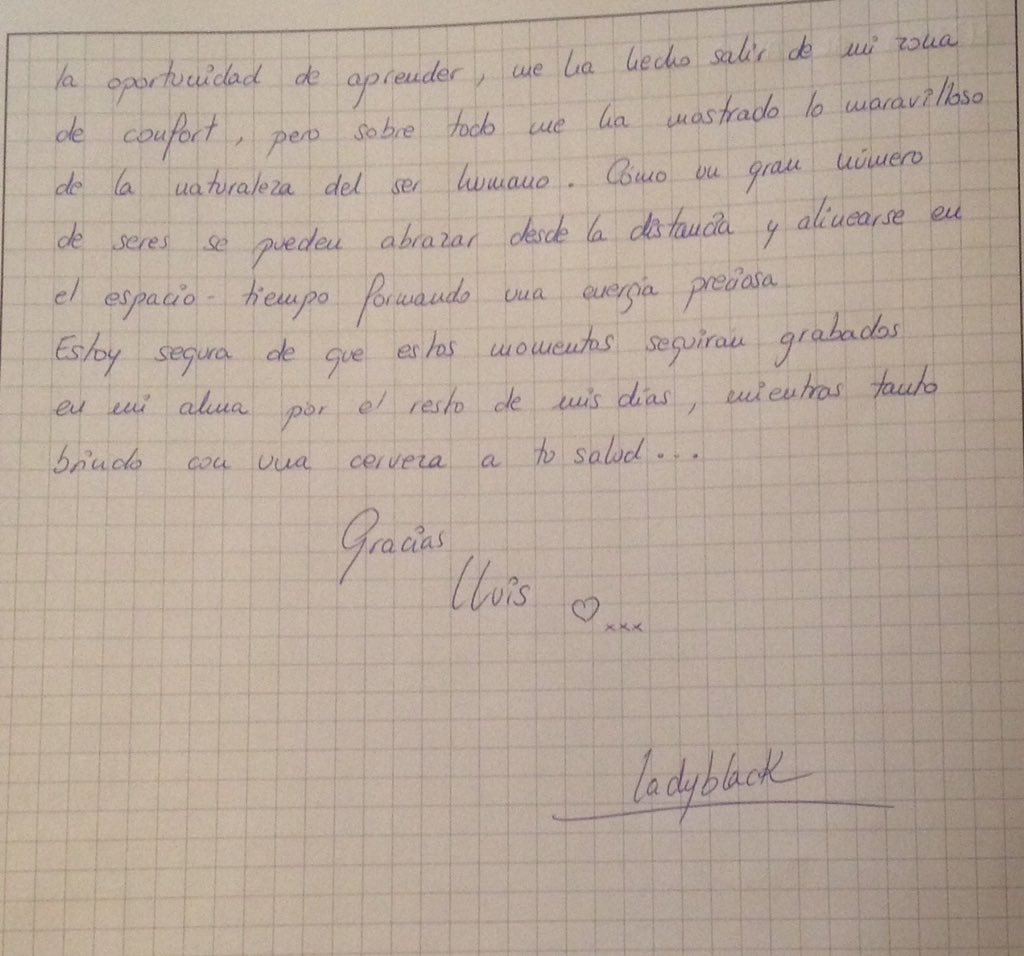 la oportunidad de aprender, me ha hecho salir de mi zona
de confort, pero sobre todo me ha mostrado lo maravilloso
de la naturaleza del ser humano. Cómo un gran número
de seres se pueden abrazar desde la distancia y alinearse en
el espacio-tiempo formando una energía preciosa
Estoy segura de que estos momentos seguiran grabados
en mi alma por el resto de mis días, mientras tanto
brindo con una cerveza a tu salud...
Gracias
Lluis ♡...
xxx
ladyblack